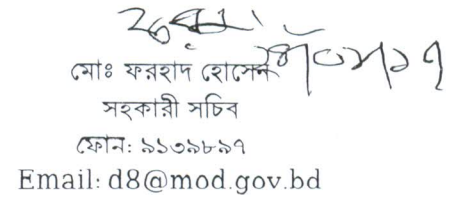 মোঃ ফরহাদ হোসেন
সহকারী সচিব
ফোন: ৯১৩৯৮৯৭
Email: d8@mod.gov.bd